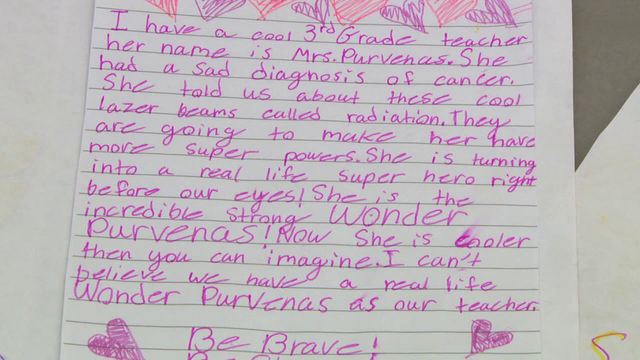 I have a cool 3rd Grade teacher
her name is Mrs. Purvenas. She
had a sad diagnosis of cancer.
She told us about these cool
lazer beams called radiation. They
are going to make her have
more super powers. She is turning
into a real life super hero right
before our eyes! She is the
incredible strong Wonder
Purvenas! Now She is cooler
then you can imagine. I can't
believe we have a real life
Wonder Purvenas as our teacher.
Be Brave!